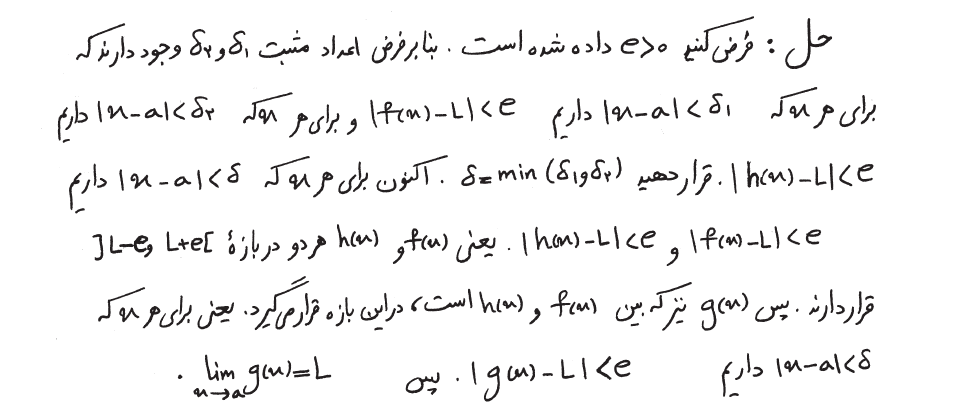 حل : فرض کنید e>0 داده شده است . بنا بر فرض اعداد مثبت δ₁ و δ₂ وجود دارند که
برای هر x که |x-a|<δ₁ داریم |f(x)-L|<e و برای هر x که |x-a|<δ₂ داریم
|h(x)-L|<e . قرار دهید δ=min(δ₁ و δ₂) . اکنون برای هر x که |x-a|<δ داریم
|f(x)-L|<e و |h(x)-L|<e . یعنی f(x) و h(x) هر دو در بازهٔ ]L-e و L+e[
قرار دارند . پس g(x) نیز که بین f(x) و h(x) است، در این بازه قرار می‌گیرد. یعنی برای هر x که
|x-a|<δ داریم |g(x)-L|<e . پس lim x→a g(x)=L .